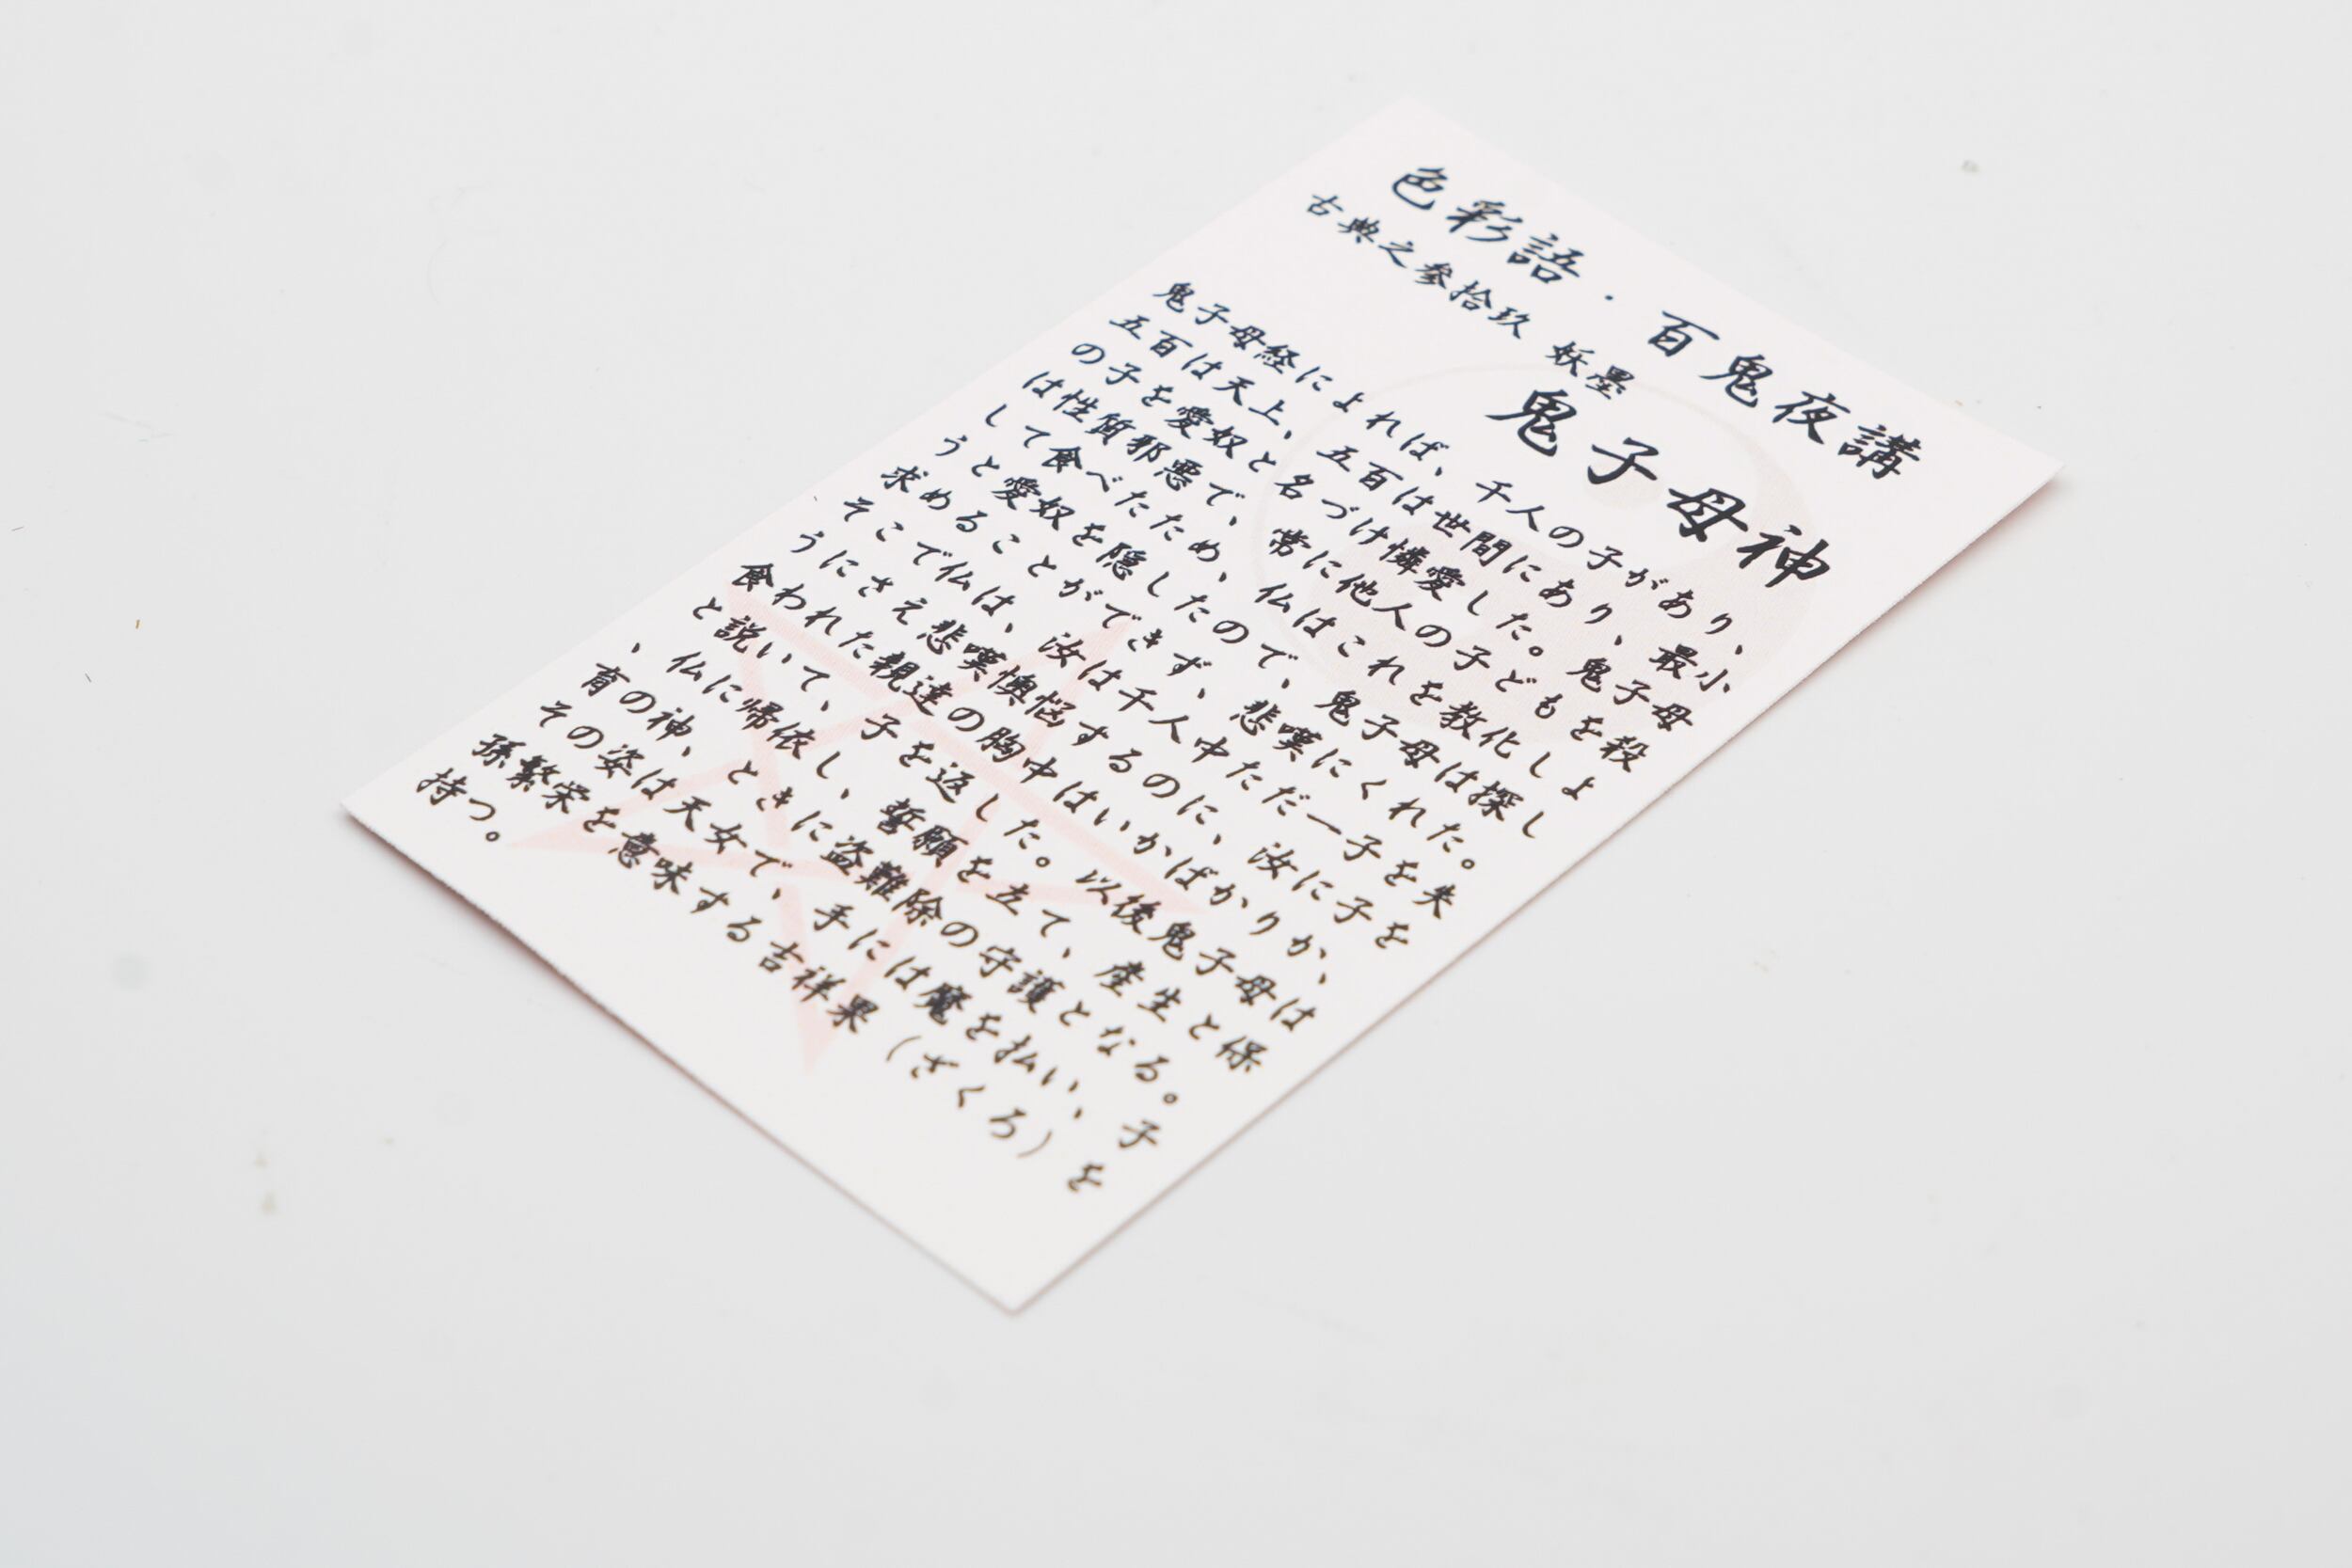 色彩語・百鬼夜講
古典之参拾玖 妖墨
鬼子母神
鬼子母経によれば、千人の子があり、
五百は天上、五百は世間にあり、最小
の子を愛奴と名づけ憐愛した。鬼子母
は性質邪悪で、常に他人の子どもを殺
して食べたため、仏はこれを教化しよ
うと愛奴を隠したので、鬼子母は探し
求めることができず、悲嘆にくれた。
そこで仏は、汝は千人中ただ一子を失
うにさえ悲嘆懊悩するのに、汝に子を
食われた親達の胸中はいかばかりか、
と説いて、子を返した。以後鬼子母は
、仏に帰依し、誓願を立て、産生と保
育の神、ときに盗難除の守護となる。
その姿は天女で、手には魔を払い、子
孫繁栄を意味する吉祥果（ざくろ）を
持つ。